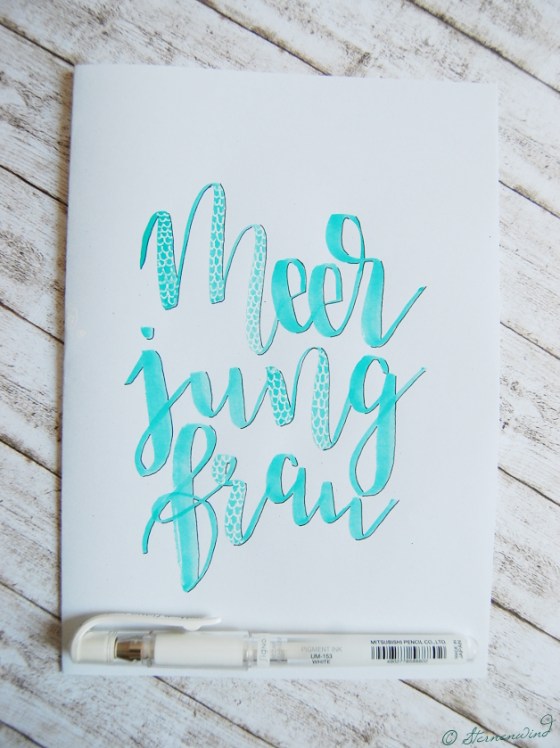 Meer
jung
frau
PIGMENT INK
UM-153
WHITE
MITSUBISHI PENCIL CO., LTD
© Sternenwind